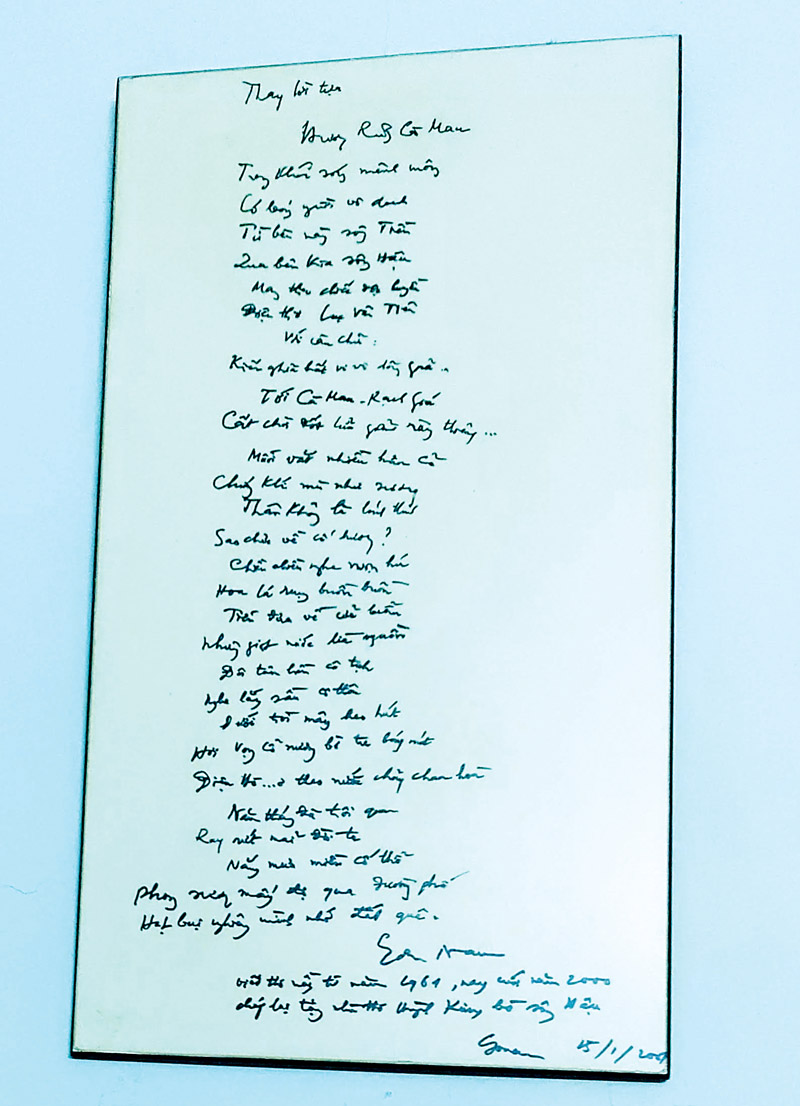 Thay lời tựa
Hương Rừng Cà Mau
Trong khói sóng mênh mông
Có bóng người vô danh
Từ bên này sông Tiền
Qua bên kia sông Hậu
Mang theo chiếc độc huyền
Điệu thơ Lục Vân Tiên
Với câu chữ:
Kiến nghĩa bất vi vô dõng giả..
Tới Cà Mau - Rạch Giá
Cất chòi đốt lửa giữa rừng thiêng...
Muỗi vắt nhiều hơn cỏ
Chướng khí mù như sương
Thân không là lính thú
Sao chưa về cố hương?
Chiều chiều nghe vượn hú
Hoa lá rụng buồn buồn
Tiễn đưa về cửa biển
Những giọt nước lìa nguồn
Đôi tâm hồn cô tịch
Nghe lắng sầu cô thôn
Dưới trời mây heo hút
Hơi vọng cổ nương bờ tre bay vút
Điệu hò...ơ theo nước chảy chan hòa
Năm tháng đã trôi qua
Ray rứt mãi đời ta
Nắng mưa miền cố thổ
Phong sương mấy độ qua đường phố
Hạt bụi nghiêng mình nhớ đất quê.
Sơn Nam
viết thơ này từ năm 1961, nay cuối năm 2000
chép lại tặng nhà thơ Huỳnh bờ sông Hậu
Sơn Nam 15/1/2001